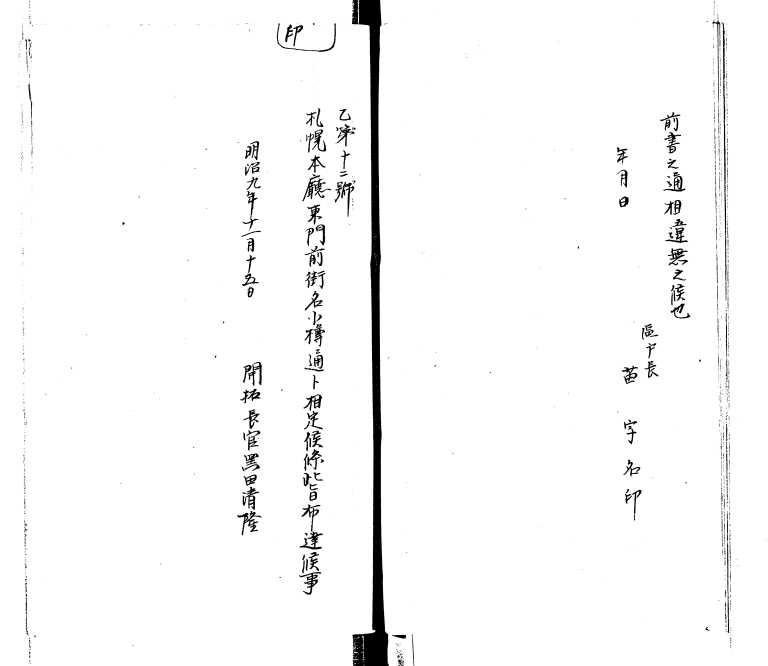 前書之通相違無之候也
年月日
區戸長
苗字名印
印
乙第十二號
札幌本廳東門前街名小樽通ト相定候條此旨布達候事
明治九年十一月十五日
開拓長官黒田清隆